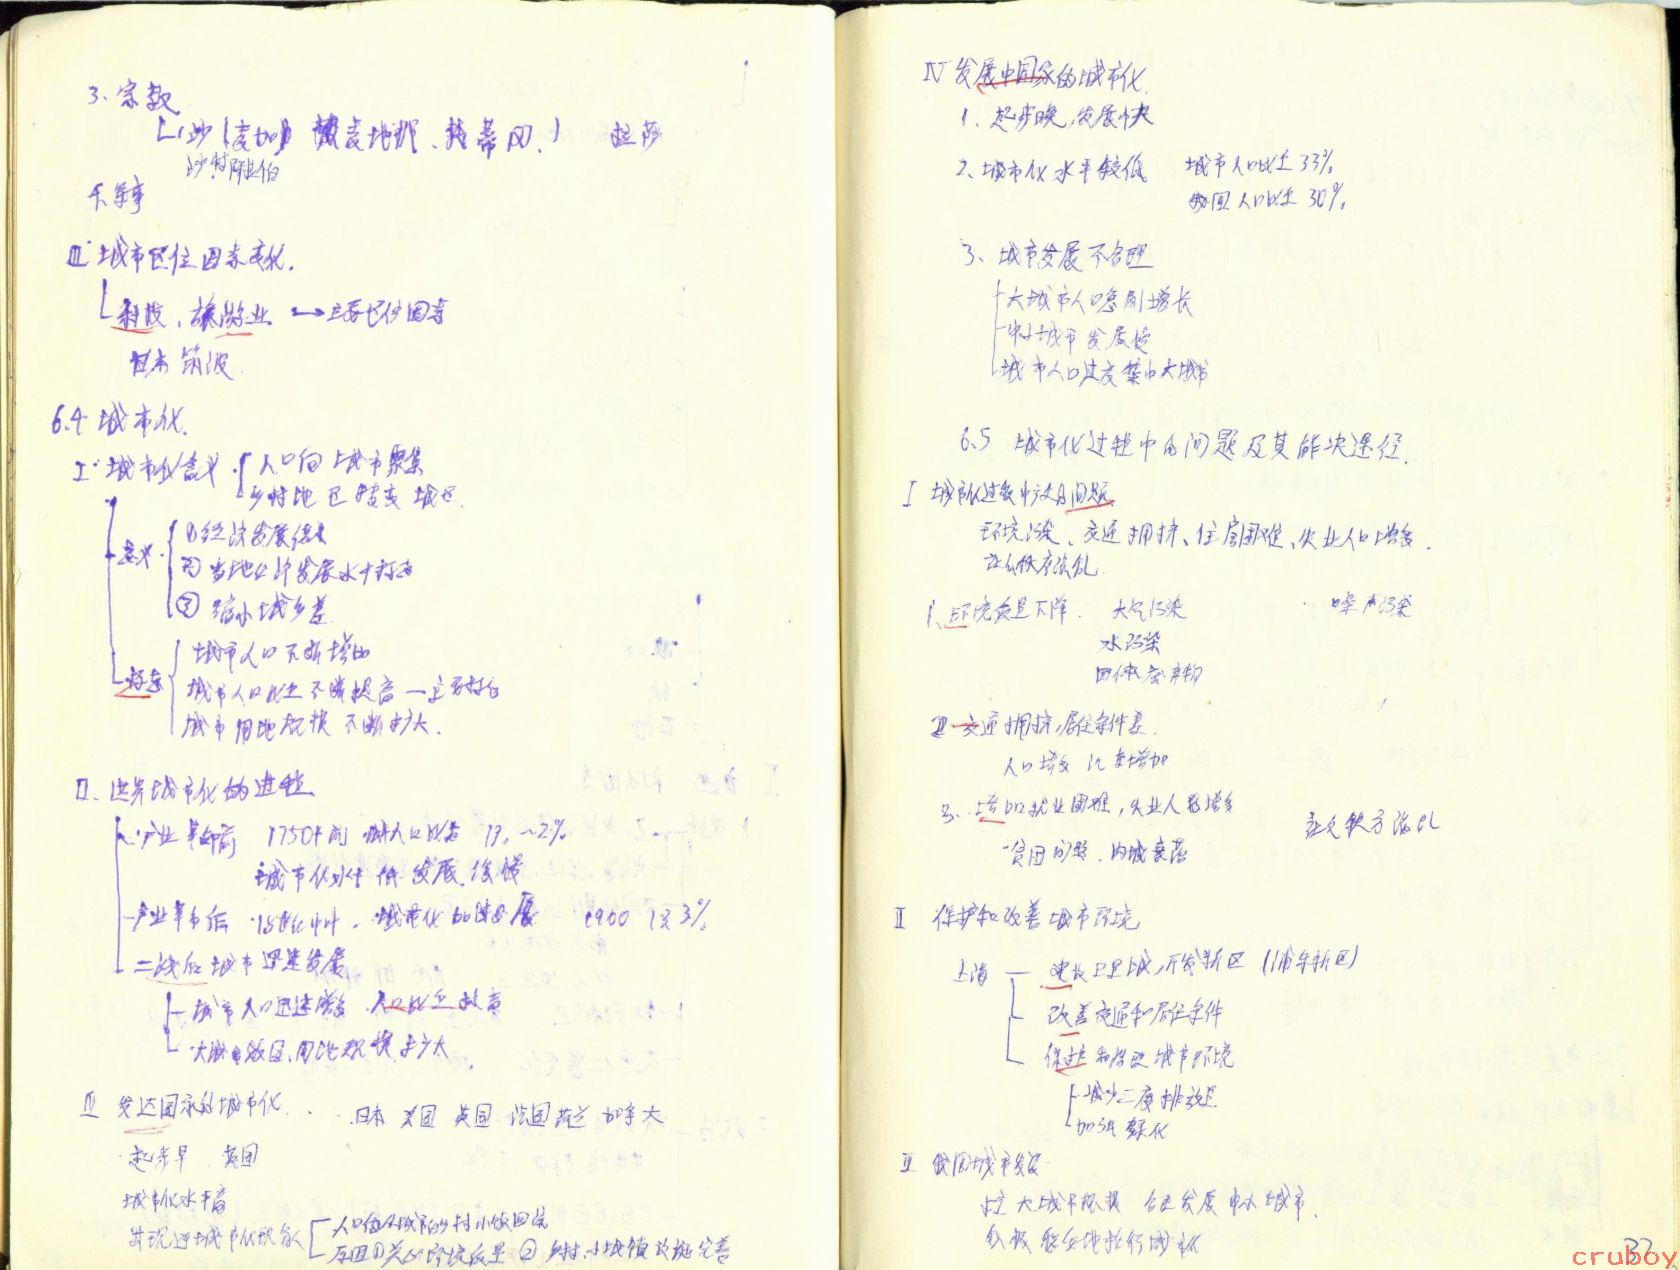 3. 宗教
沙(麦加) 麦地那、梵蒂冈、拉萨
沙特阿拉伯
4. 军事
III 城市区位因素变化.
科技、旅游业 → 主要区位因素
日本 筑波
6.4 城市化.
I. 城市化含义 人口向城市聚集
乡村地区转变城区.
意义 ①经济发展结果
②当地经济发展水平标志
③缩小城乡差
标志 城市人口不断增加
城市人口比重不断提高 — 主要标志
城市用地规模不断扩大.
II. 世界城市化的进程
产业革命前 1750年前 城市人口比占 1% ~2%
城市化水平低 发展 缓慢
产业革命后 18世纪中叶. 城市化加速发展 1900 13.3%
二战后城市迅速发展
城市人口迅速增多 人口比重较高
大城市效区、用地规模扩大
III 发达国家的城市化. 日本 美国 英国 法国 荷兰 加拿大
起步早 英国
城市化水平高
出现逆城市化现象 人口 城市 乡村小镇回流
原因①关心环境质量 ②乡村、小城镇设施完善
IV 发展中国家的城市化.
1、起步晚,发展快
2、城市化水平较低 城市人口比重33%.
我国人口比重30%.
3、城市发展不合理
大城市人口急剧增长
中小城市发展慢
城市人口过度集中大城市
6.5 城市化过程中的问题及其解决途径.
I 城市化过程中 问题
环境污染、交通拥挤、住房困难、失业人口增多.
社会秩序混乱.
1、环境质量下降. 大气污染 噪声污染
水污染
固体废弃物
2 交通拥挤,居住条件差.
人口增多 汽车增加
3. 增加就业困难,失业人数增多 社会秩序混乱
贫困问题、内城衰落
II 保护和改善城市环境
上海 — 建设卫星城,开发新区 (浦东新区)
改善交通和居住条件
保护和治理城市环境
减少二度排放量
加强绿化
III 我国城市发展
控 大城市规模 合理发展中小城市.
积极 地推行城市化
37
cruboy